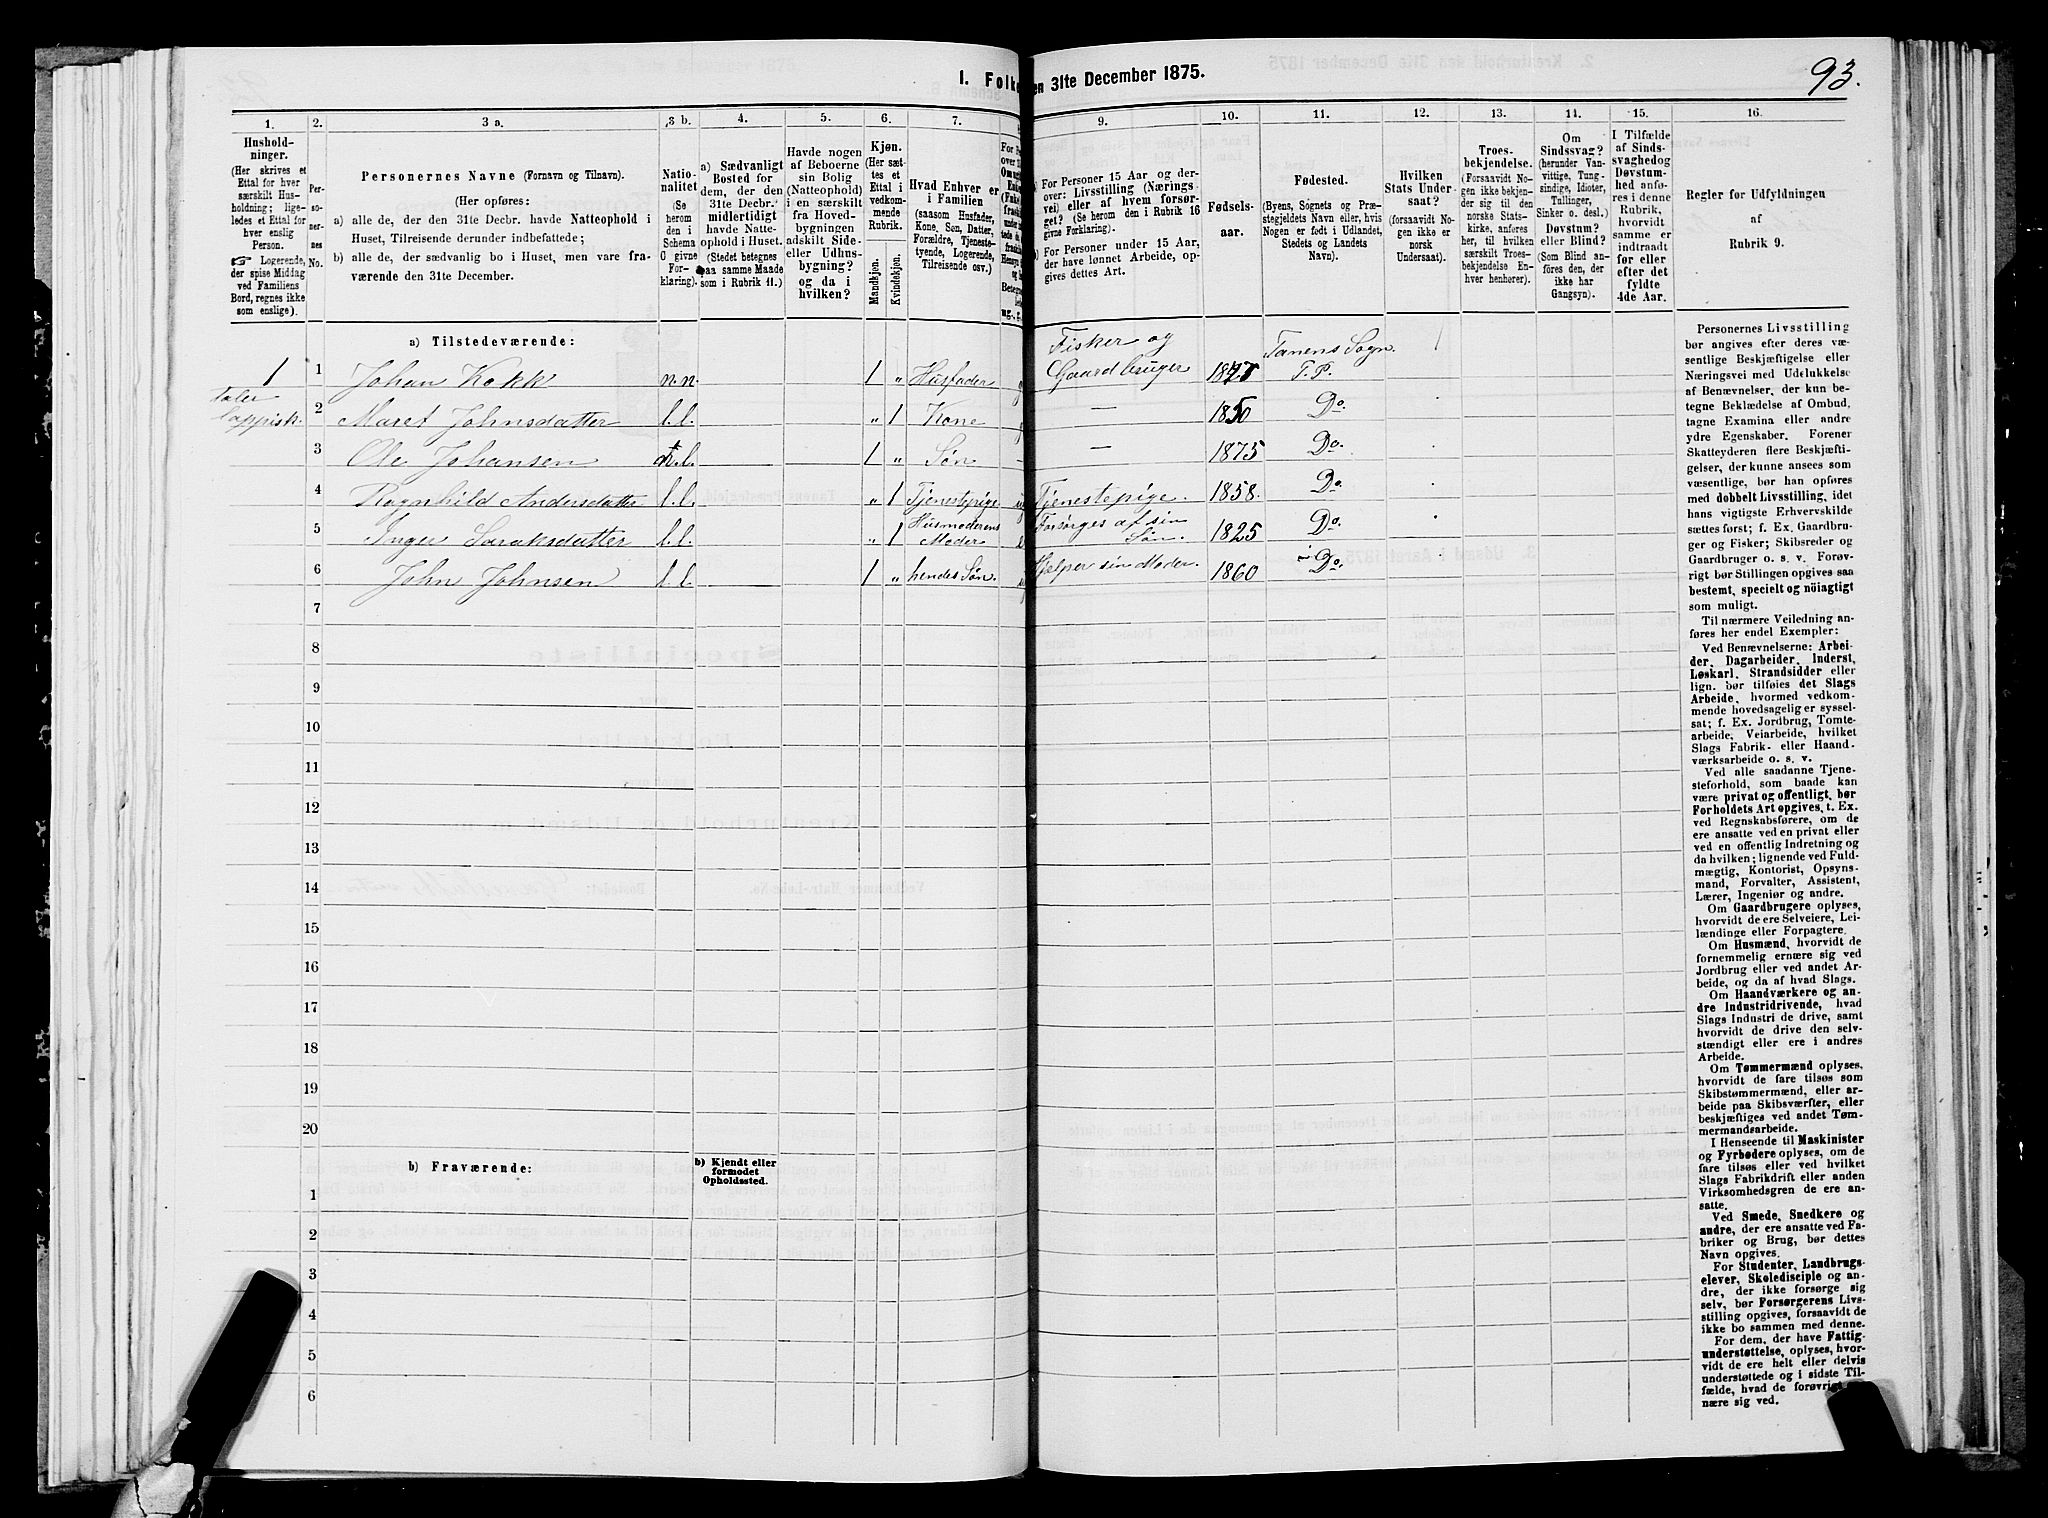 93.
I. Folke
en 31te December 1875.
1. 2. 3 a. 3 b. 4. 5. 6. 7. 9. 10. 11. 12. 13. 14. 15. 16.
Hushold-
ninger.
(Her skrives et
Ettal for hver
særskilt Hus-
holdning; lige-
ledes et Ettal for
hver enslig
Person.
☞ Logerende,
der spise Middag
ved Familiens
Bord, regnes ikke
som enslige).
Per-
so-
ner-
nes
No.
Personernes Navne (Fornavn og Tilnavn).
(Her opføres:
a) alle de, der den 31te Decbr. havde Natteophold i
Huset, Tilreisende derunder indbefattede;
b) alle de, der sædvanlig bo i Huset, men vare fra-
værende den 31te December.
Natio-
nalitet
(Se
herom
den i
Schema
C givne
For-
klaring).
a) Sædvanligt
Bosted for
dem, der den
31te Decbr.
midlertidigt
havde Natte-
ophold i Huset.
(Stedet betegnes
paa samme Maade
som i Rubrik 11.)
Havde nogen
af Beboerne
sin Bolig
(Natteophold)
i en særskilt
fra Hoved-
bygningen
adskilt Side-
eller Udhus-
bygning?
og da i
hvilken?
Kjøn.
(Her sæt-
tes et
Ettal i
vedkom-
mende
Rubrik.
Mandkjøn.
Kvindekjøn.
Hvad Enhver er
i Familien
(saasom Husfader,
Kone, Søn, Datter,
Forældre, Tjeneste-
tyende, Logerende,
Tilreisende osv.)
a) For Personer 15 Aar og der-
over: Livsstilling (Nærings-
vei) eller af hvem forsør-
get? (Se herom den i Rubrik 16
givne Forklaring).
b) For Personer under 15 Aar,
der have lønnet Arbeide, op-
gives dettes Art.
Fødsels-
aar.
Fødested.
(Byens, Sognets og Præ-
stegjeldets Navn eller, hvis
Nogen er født i Udlandet,
Stedets og Landets
Navn).
Hvilken
Stats Under-
saat?
(forsaavidt No-
gen ikke er
norsk
Undersaat).
Troes-
bekjendelse.
(Forsaavidt No-
gen ikke bekjen-
der sig til den
norske Stats-
kirke, anføres
her, til hvilken
særskilt Troes-
bekjendelse En-
hver henhører).
Om
Sindssvag?
(herunder Van-
vittige, Tung-
sindige, Idioter,
Tullinger,
Sinker o. desl.)
Døvstum?
eller Blind?
(Som Blind an-
føres den, der
ikke har
Gangsyn).
I Tilfælde
af Sinds-
svaghed og
Døvstum-
hed anfø-
res i denne
Rubrik,
hvorvidt
samme er
indtraadt
før eller
efter det
fyldte
4de Aar.
Regler for Udfyldningen
af
Rubrik 9.
a) Tilstedeværende:
1 1 Johan Kokk n.n. 1 „ Husfader Fisker og Gaardbruger Tanens Sogn. T. P.
taler lappisk.
2 Maret Johnsdatter l.l. „ 1 Kone — 1850 Do.
3 Ole Johansen 1 „ Søn — 1875 Do.
4 Ragnhild Andersdatter l.l. „ 1 Tjenestepige Tjenestepige. 1858. Do.
5 Inger Saraksdatter l.l. „ 1 Husmoderens Moder Forsørges af sin Søn. 1825 Do.
6 John Johnsen l.l. 1 „ hendes Søn. Hjelper sin Moder. 1860 Do.
7
8
9
10
11
12
13
14
15
16
17
18
19
20
b) Fraværende:
b) Kjendt eller
formodet
Opholdssted.
1
2
3
4
5
6
Personernes Livsstilling
bør angives efter deres væ-
sentlige Beskjæftigelse eller
Næringsvei med Udelukkelse
af Benævnelser, der kun be-
tegne Beklædelse af Ombud,
tagne Examina eller andre
ydre Egenskaber. Forener
Skatteyderen flere Beskjæfti-
gelser, der kunne ansees som
væsentlige, bør han opføres
med dobbelt Livsstilling, idet
hans vigtigste Erhvervskilde
sættes først; f. Ex. Gaardbru-
ger og Fisker; Skibsreder og
Gaardbruger o. s. v. Forøv-
rigt bør Stillingen opgives saa
bestemt, specielt og nöiagtigt
som muligt.
Til nærmere Veiledning an-
føres her endel Exempler:
Ved Benævnelserne: Arbei-
der, Dagarbeider, Inderst,
Løskarl, Strandsidder eller
lign. bør tilføies det Slags
Arbeide, hvormed vedkom-
mende hovedsagelig er syssel-
sat; f. Ex. Jordbrug, Tomte-
arbeide, Veiarbeide, hvilket
Slags Fabrik- eller Haand-
værksarbeide o. s. v.
Ved alle saadanne Tjene-
steforhold, som baade kan
være privat og offentligt, bør
Forholdets Art opgives, t. Ex.
ved Regnskabsførere, om de
ere ansatte ved en privat eller
ved en offentlig Indretning og
da hvilken; lignende ved Fuld-
mægtig, Kontorist, Opsyns-
mand, Forvalter, Assistent,
Lærer, Ingeniør og andre.
Om Gaardbrugere oplyses,
hvorvidt de ere Selveiere, Lei-
lændinge eller Forpagtere.
Om Husmænd, hvorvidt de
fornemmelig ernære sig ved
Jordbrug eller ved andet Ar-
beide, og da af hvad Slags.
Om Haandværkere og an-
dre Industridrivende, hvad
Slags Industri de drive, samt
hvorvidt de drive den selv-
stændigt eller ere i andres
Arbeide.
Om Tømmermænd oplyses,
hvorvidt de fare tilsøs som
Skibstømmermænd, eller ar-
beide paa Skibsværfter, eller
beskjæftiges ved andet Tøm-
mermandsarbeide.
I Henseende til Maskinister
og Fyrbødere oplyses, om de
fare tilsøs eller ved hvilket
Slags Fabrikdrift eller anden
Virksomhedsgren de ere an-
satte.
Ved Smede, Snedkere og
andre, der ere ansatte ved Fa-
briker og Brug, bør dettes
Navn opgives.
For Studenter, Landbrugs-
elever, Skoledisciple og an-
dre, der ikke forsørge sig
selv, bør Forsørgerens Livs-
stilling opgives, forsaavidt de
ikke bo sammen med denne.
For dem, der have Fattig-
understøttelse, oplyses, hvor-
vidt de ere helt eller delvis
understøttede og i sidste Til-
fælde, hvad de forøvrigt
nære sig ved.